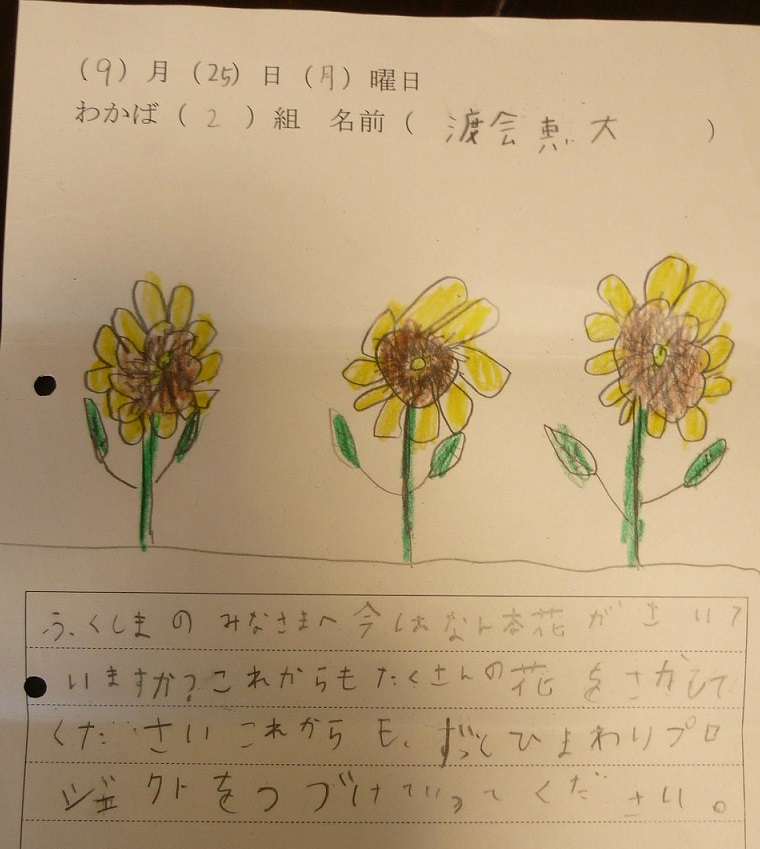 (9)月(25)日(月)曜日
わかば(2)組 名前(渡会恵大)
ふくしまの みなさまへ 今はなん本花がさいて
いますか?これからもたくさんの花をさがして
ください これからも、ずっとひまわりプロ
ジェクトをつづけていってください。